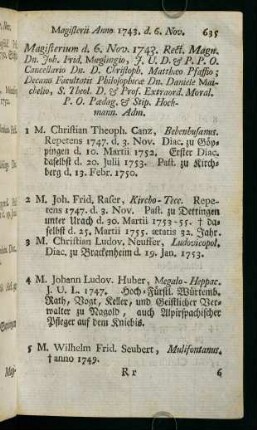 Magisterii Anno 1743. d. 6. Nov. 635
Magisterium d. 6. Nov. 1743. Rect. Magn.
Dn. Joh. Frid. Mœglingio, J. U. D. & P. P. O.
Cancellario Dn. D. Christoph. Matthæo Pfaffio;
Decano Facultatis Philosophicæ Dn. Daniele Mai-
chelio, S. Theol. D. & Prof. Extraord. Moral.
P. O. Pædag. & Stip. Hoch-
mann. Adm.
1 M. Christian Theoph. Canz, Bebenhusanus.
Repetens 1747. d. 3. Nov. Diac. zu Göp-
pingen d. 10. Martii 1752, Erster Diac.
daselbst d. 20. Julii 1753. Past. zu Kirch-
berg d. 13. Febr. 1750.
2 M. Joh. Frid. Raser, Kircho-Tecc. Repe-
tens 1747. d. 3. Nov. Past. zu Dettingen
unter Urach d. 30. Martii 1753-55. † da-
selbst d. 25. Martii 1755. ætatis 32. Jahr.
3 M. Christian Ludov. Neuffer, Ludovicopol.
Diac. zu Brackenheim d. 19. Jan. 1753.
4 M. Johann Ludov. Huber, Megalo-Heppac.
J. U. L. 1747. Hoch-Fürstl. Würtemb.
Rath, Vogt, Keller, und Geistlicher Ver-
walter zu Nagold, auch Alpirspachischer
Pfleger auf dem Kniebis.
5 M. Wilhelm Frid. Seubert, Mulifontanus.
† anno 1749.
R r 6